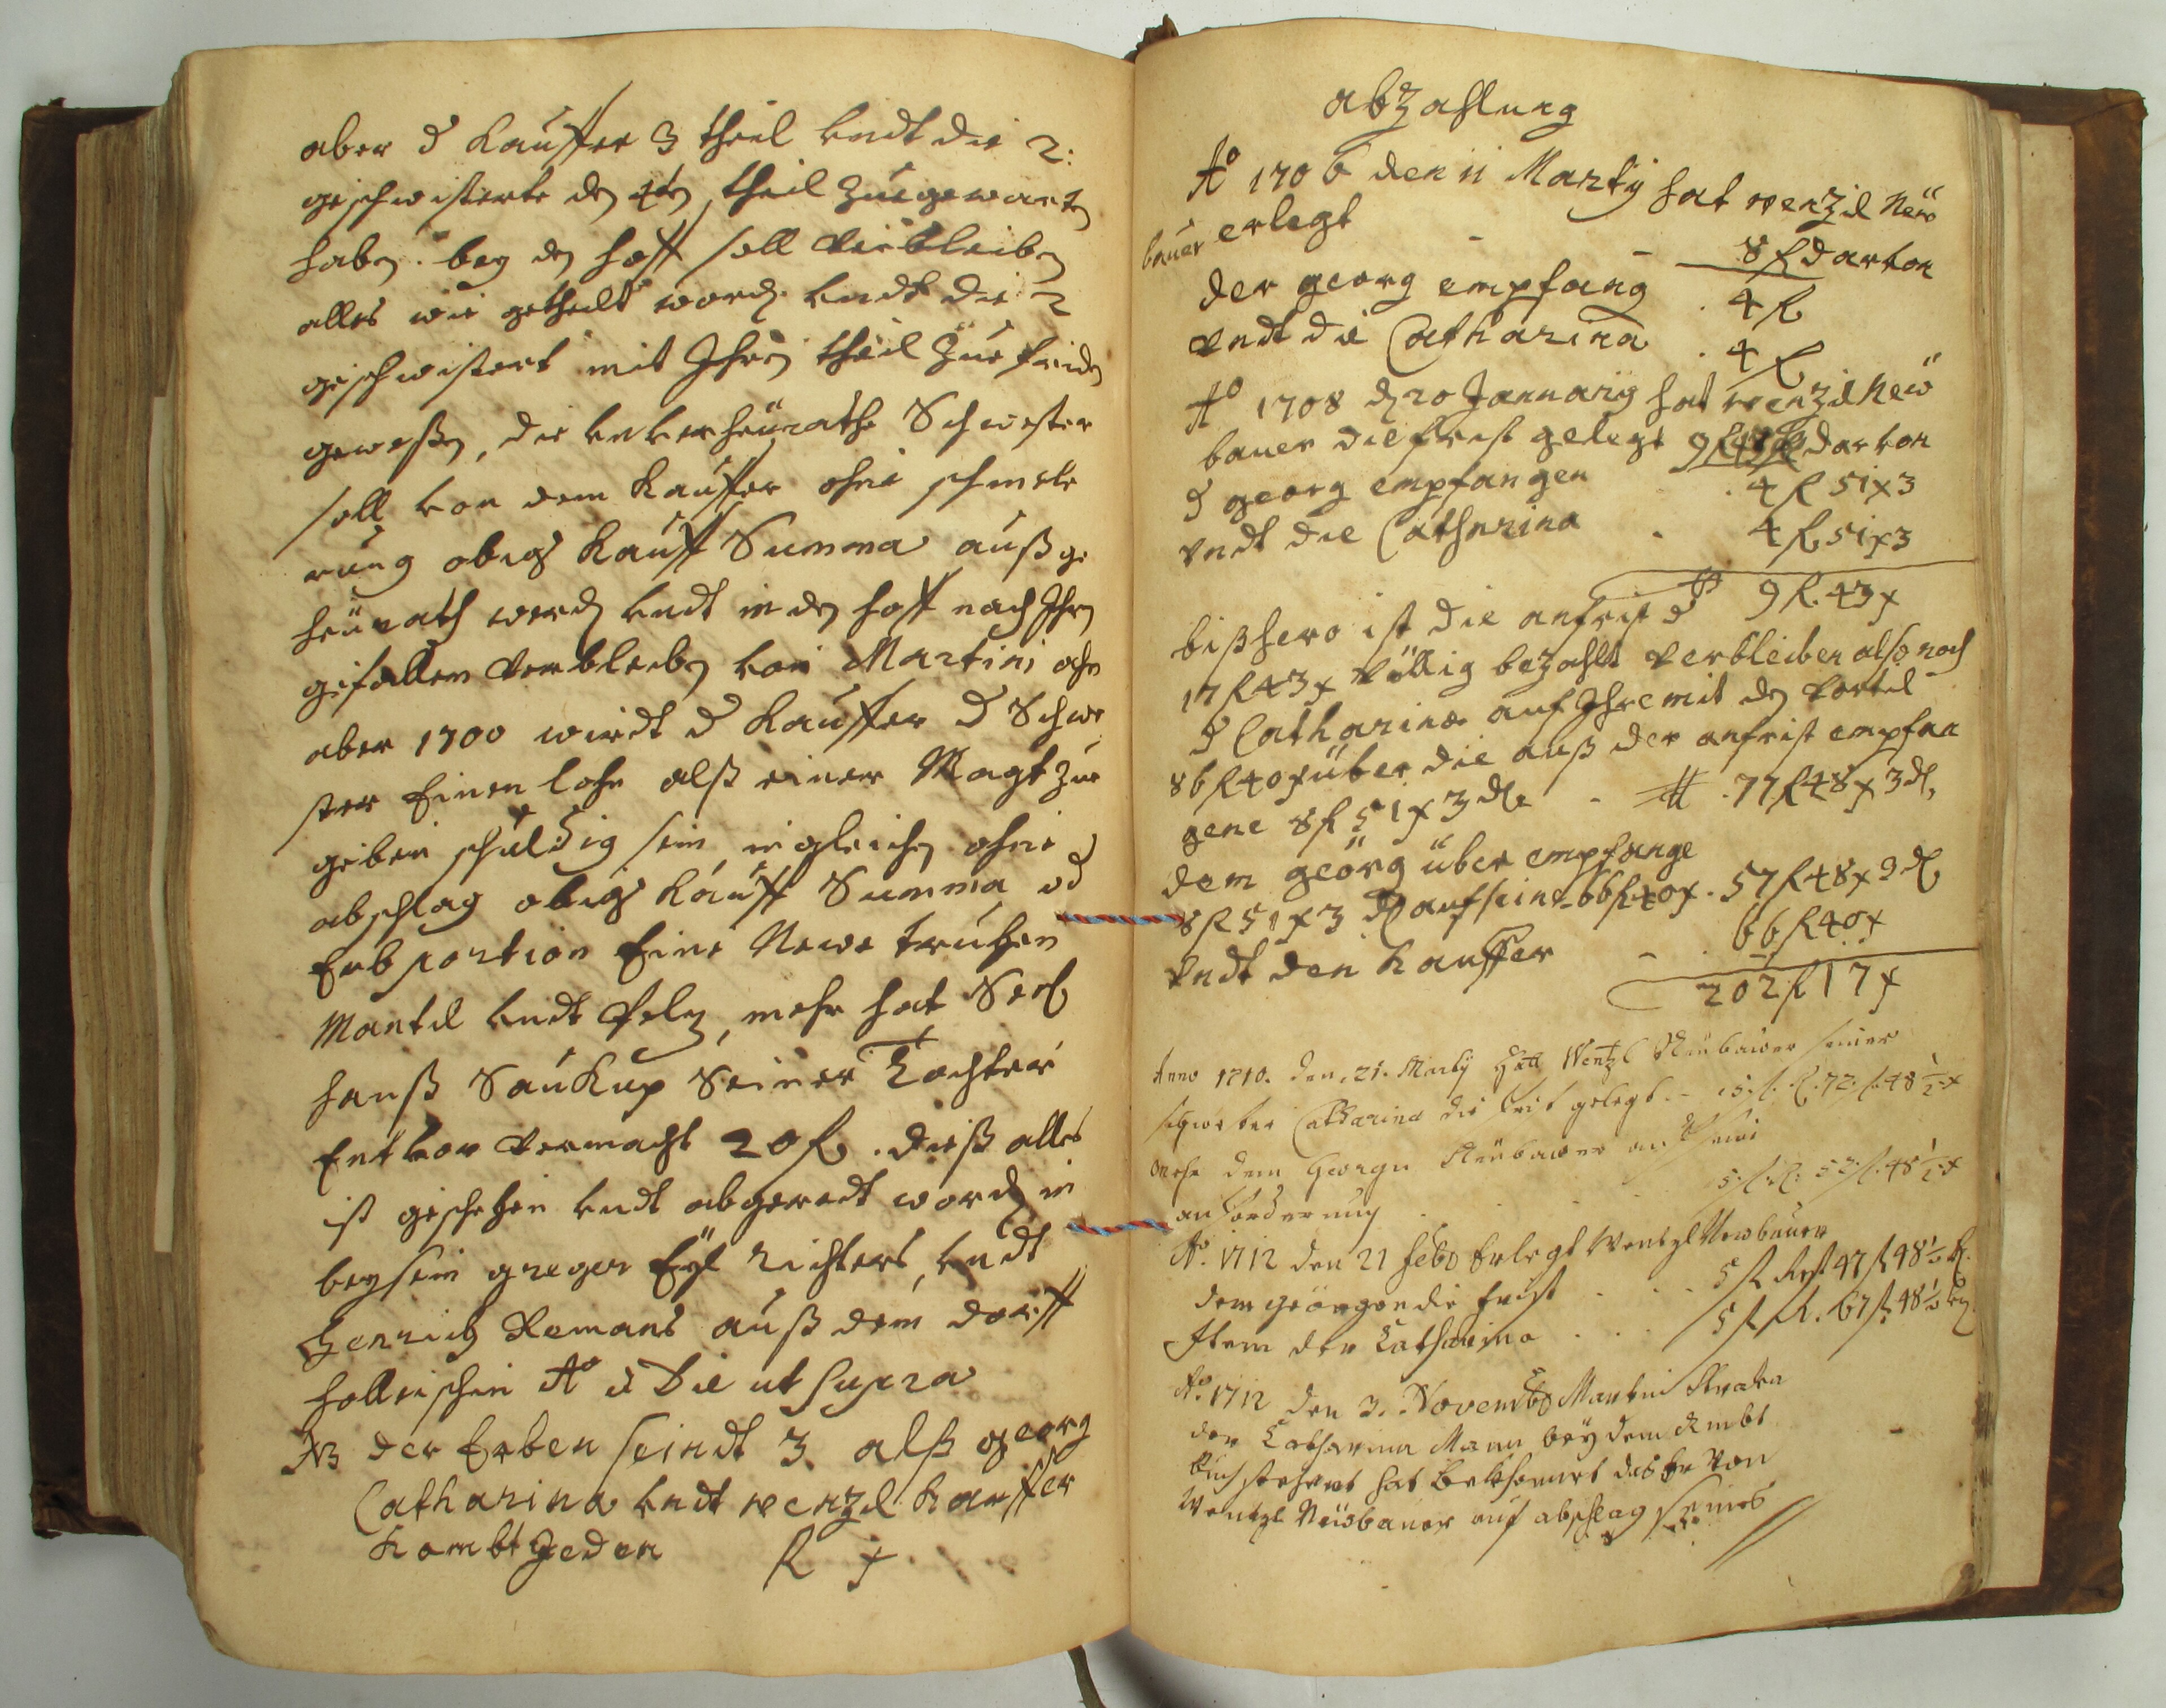 aber d Kauffer 3 theil vndt die 2:
geschwisterte den 4ten theil zue gewarten
haben. bey den hoff soll verbleiben
alles wie getheilt worden. vndt die 2
geschwistert mit Ihren theil zue friden
gewessen, die vnverheürathe Schwester
soll von dem Kauffer ohne schmele
rung obigs Kauff Summa außge
heürath werden vndt in den hoff nach Ihren
gefallen verbleiben von Martini ahn
aber 1700 wirdt d Kauffer d Schwe
ster Einen lohn alß einer Magt zue
geben schuldig sein, ingleichen ohne
abschlag obigs Kauff Summa, od
Erbportion Eine Newe truhen
Mantel vndt Peltz, mehr hat Seel
hanß Saukup Seiner Tochter
Entvor vermacht 20 f. dieß alles
ist geschehen vndt abgeredt worden in
beysein greger Richters, vndt
Henrich Remans auß dem dorff
holleischen Ao & Die ut Supra
NB der Erben seindt 3. alß georg
Catharina vndt wenzel Kauffer
Kombt Jeden f x
abzahlung
Ao 1706 den 11 Martij hat wenzel New
bauer erlegt - - 8 f darvon
der georg empfang . 4 f
vndt die Catharina . 4 f
Ao 1708 den 20 Januarij hat wenzel New
bauer die frist gelegt 9 f 43 x darvon
d georg empfangen . 4 f 51 x 3
vndt die Catharina . 4 f 51 x 3
9 f. 43 x
bißhero ist die anfrist d
17 f 43 x völlig bezahlt verbleiben also noch
d Catharina auf Ihre mit den vortel
86 f 40 x über die auß der anfrist empfan
gene 8 f 51 x 3 dl - . 77 f 48 x 3 dl,
dem georg über empfange
8 f 51 x 3 dl auf seine 66 f 40 x . 57 f 48 x 3 dl
vndt den Kauffer - . 66 f 40 x
202 f 17 x
Anno 1710. den 21. Martij hatt Wentzl Neubawer seiner
schwester Catharina die frist gelegt. - 5. f. R. 72. f. 48 1/2 x
mehr dem Georgen Neubawer an seine
anforderung . . 5. f. R. 52. f. 48 1/2 x
Ao. 1712 den 21 feb: Erlegt Wentzl Newbauer
dem georgen die frist . . . 5 f Rest 47 f 48 1/2 x.
Item der Catharina . . . 5 f R. 67 f 48 1/2 x
Ao. 1712 den 3. Novemb: Martin
der Catharina Mann bey dem Ambt
hat bekhennet das er von
Wentzl Neubauer auf abschlag seines